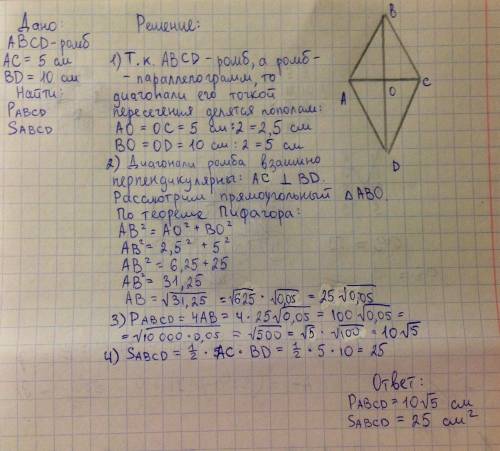 Дано:
ABCD - ромб
AC = 5 см
BD = 10 см
Найти:
PABCD
SABCD
Решение:
1) Т. к. ABCD - ромб, а ромб -
- параллелограмм, то
диагонали его точкой
пересечения делятся пополам:
AO = OC = 5 см : 2 = 2,5 см
BO = OD = 10 см : 2 = 5 см
2) Диагонали ромба взаимно
перпендикулярны: AC ⊥ BD.
Рассмотрим прямоугольный △ABO.
По теореме Пифагора:
AB² = AO² + BO²
AB² = 2,5² + 5²
AB² = 6,25 + 25
AB² = 31,25
AB = √31,25 = √625 · √0,05 = 25√0,05
3) PABCD = 4AB = 4 · 25√0,05 = 100√0,05 =
= √10 000 · 0,05 = √500 = √5 · √100 = 10√5
4) SABCD = 1/2 · AC · BD = 1/2 · 5 · 10 = 25
Ответ:
PABCD = 10√5 см
SABCD = 25 см²
B
A
O
C
D